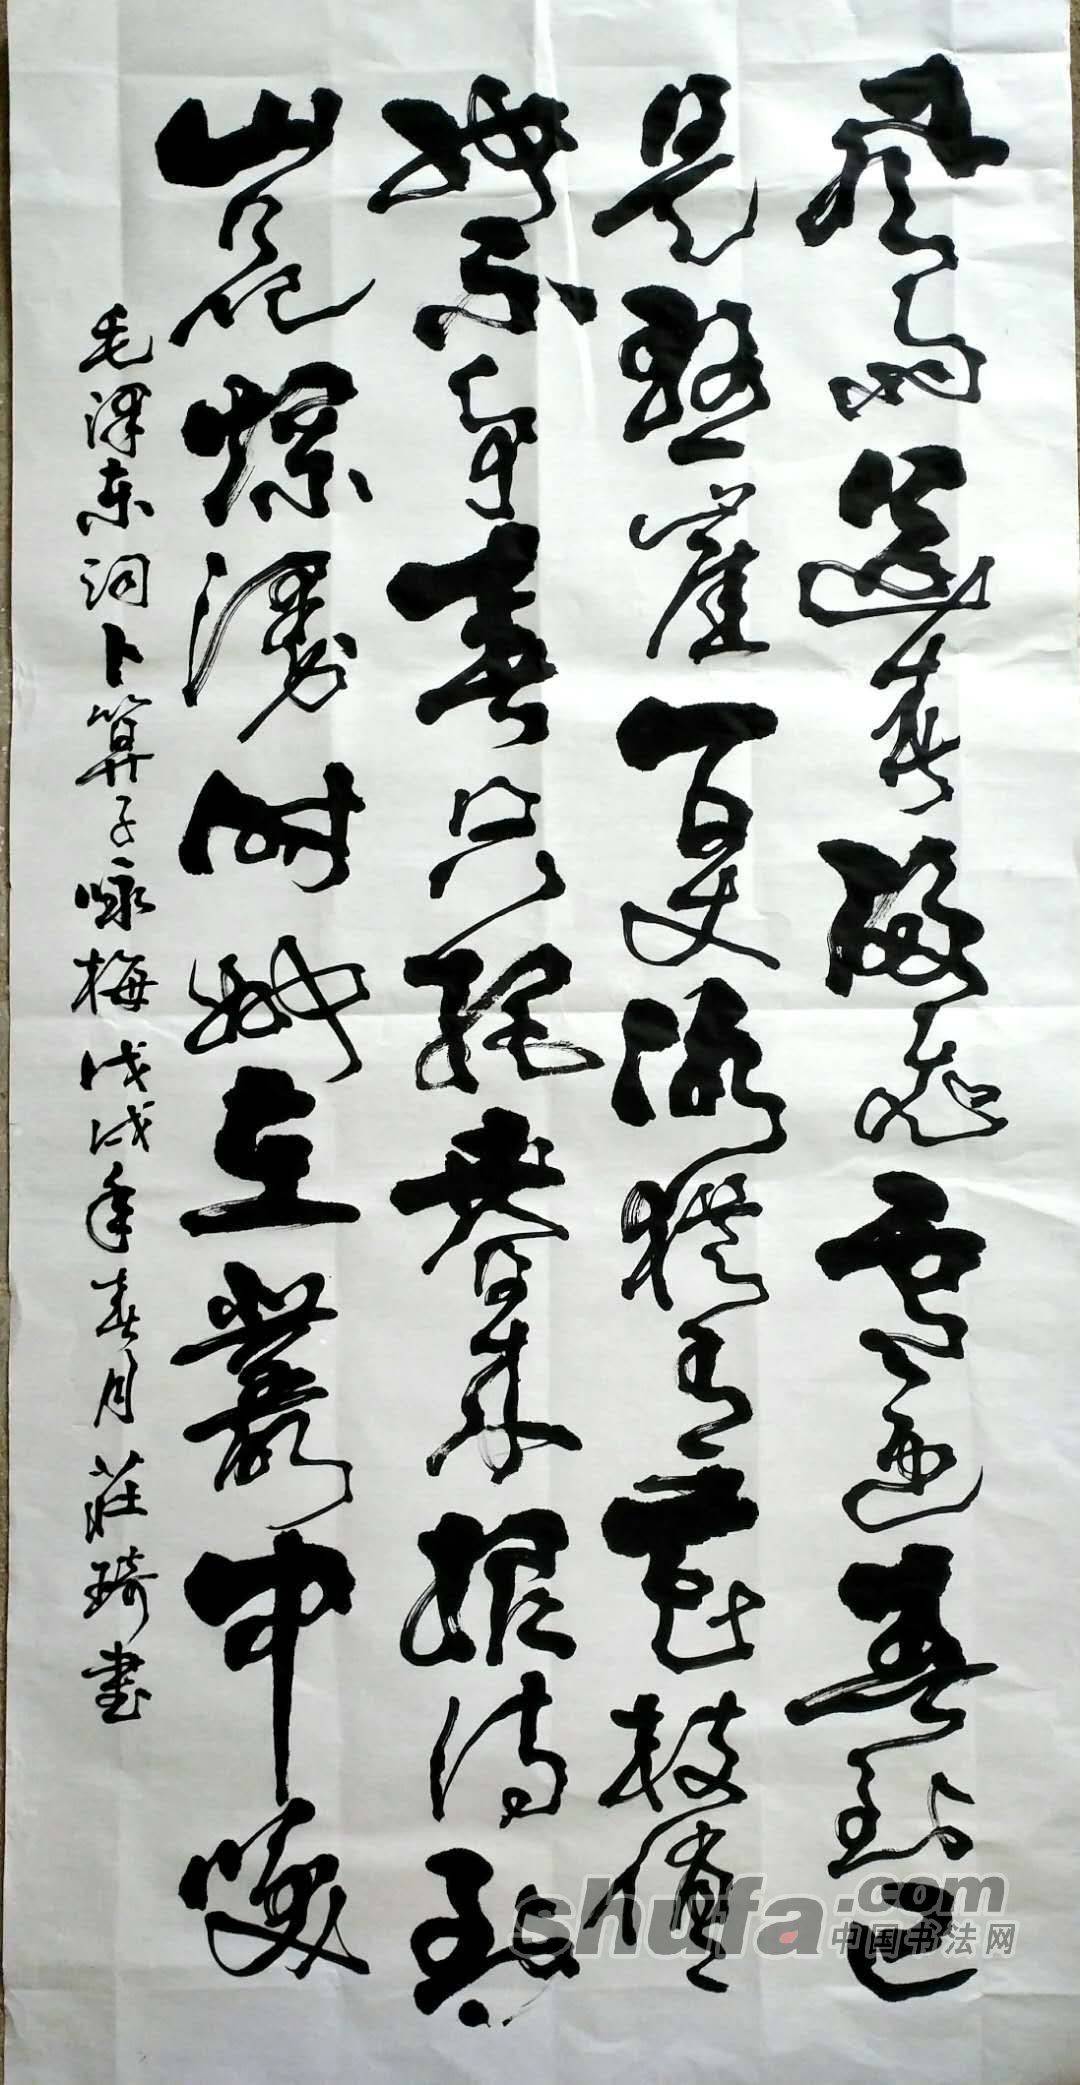 風雨送春歸飛雪迎春到已
是懸崖百丈冰猶有花枝俏
她不争春只把春来报待到
山花爛漫時她在叢中咲
毛泽东词卜算子咏梅戊戌年春月莊琦書
shufa.com
中国书法网